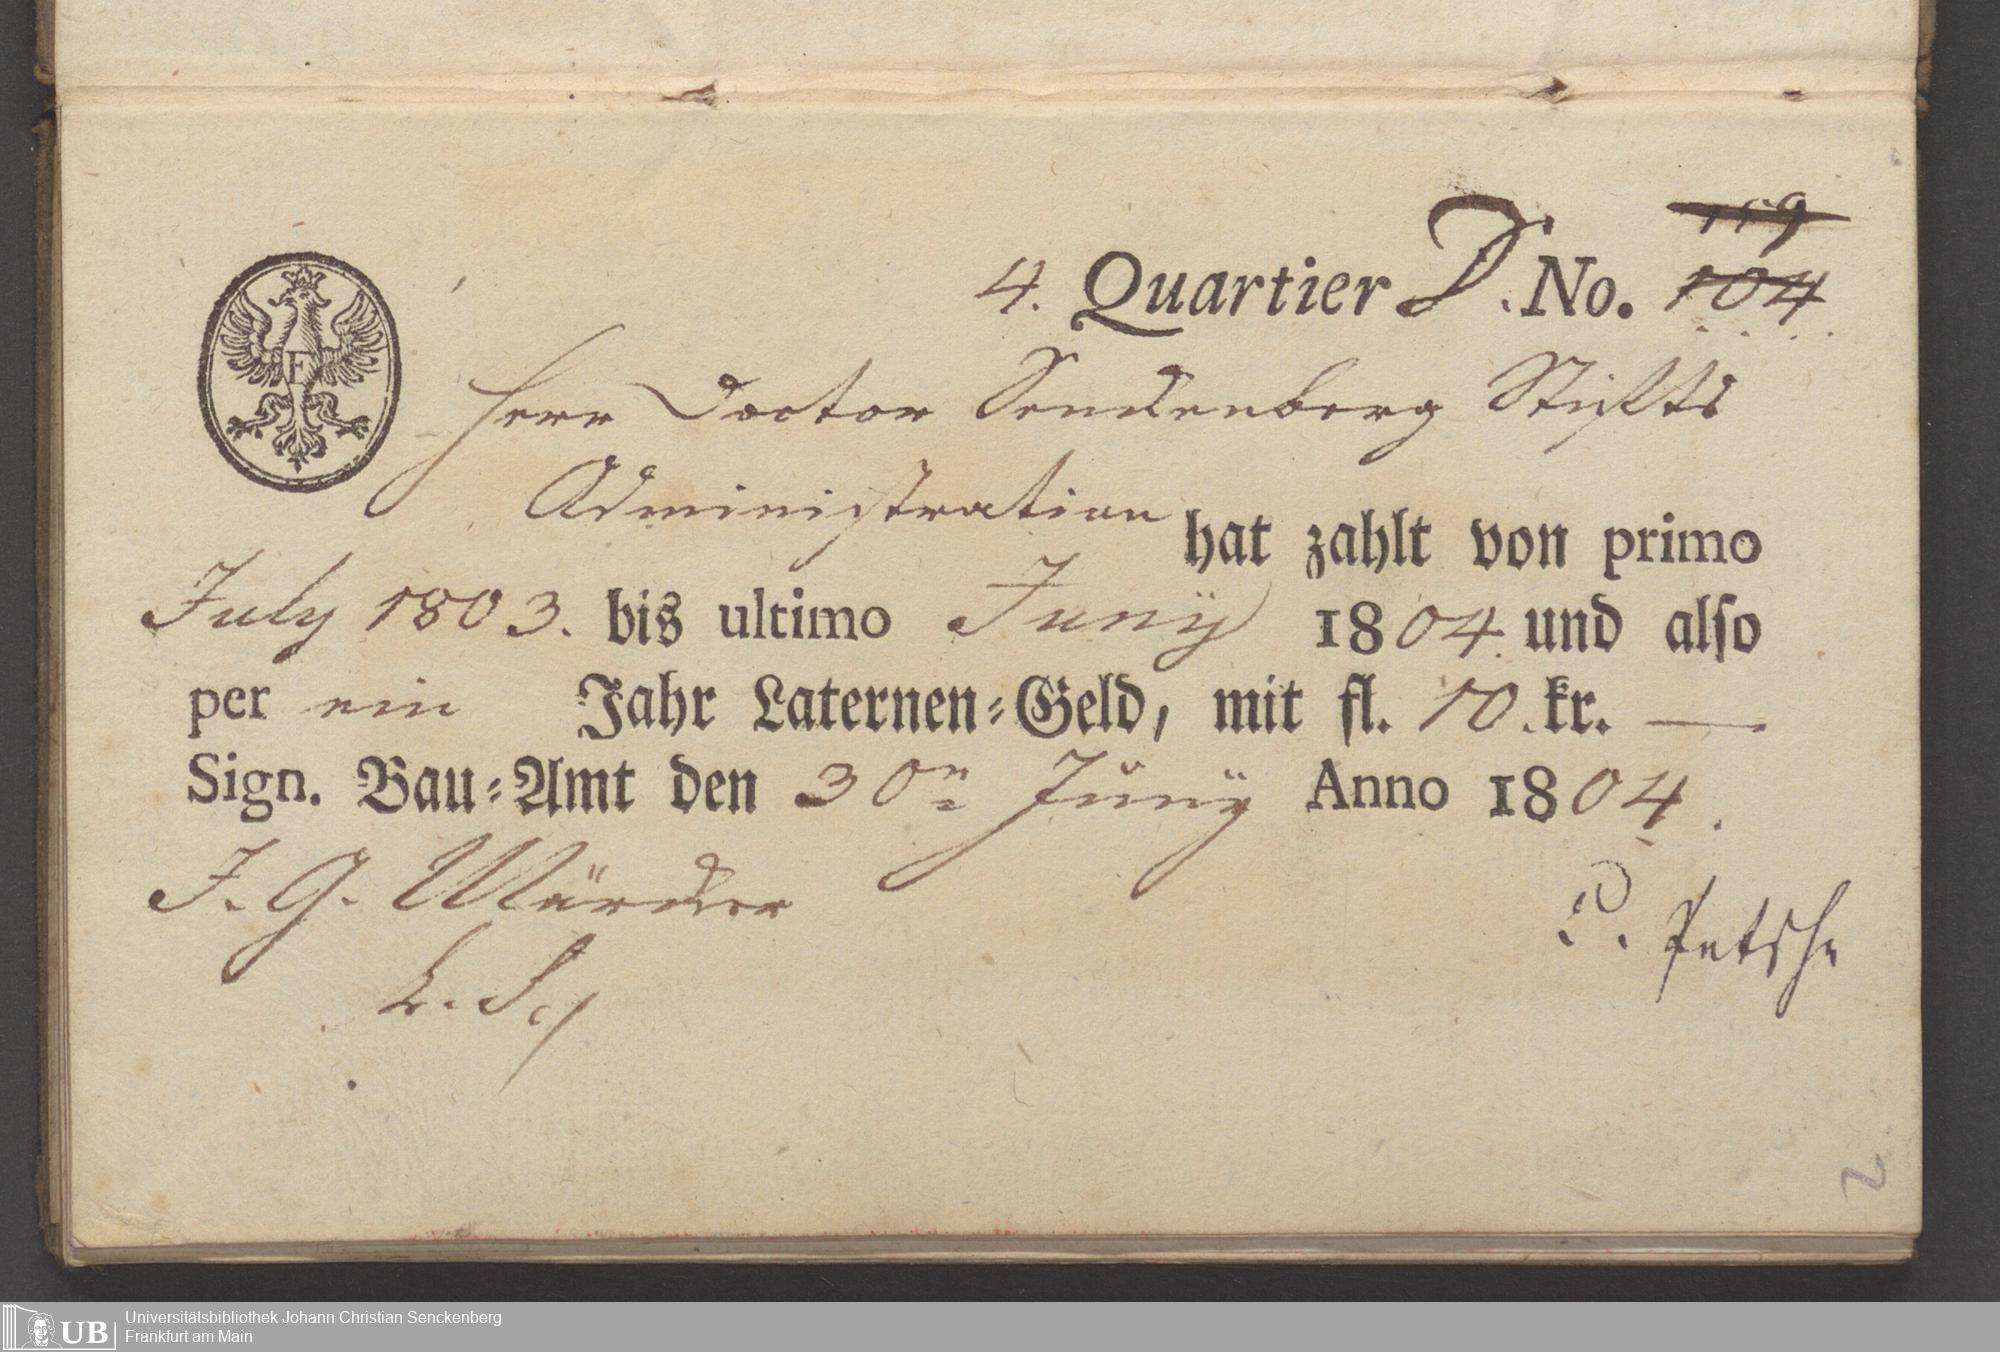 159
4. Quartier D. No. 104
Herr Doctor Senckenberg Stiffts
Administration hat zahlt von primo
July 1803. bis ultimo Junÿ 1804. und also
per ein Jahr Laternen-Geld, mit fl. 10. kr. —
Sign. Bau-Amt den 30n Junÿ Anno 1804.
J. G. Märcker
P. Petsch
F
2
Universitätsbibliothek Johann Christian Senckenberg
Frankfurt am Main
UB